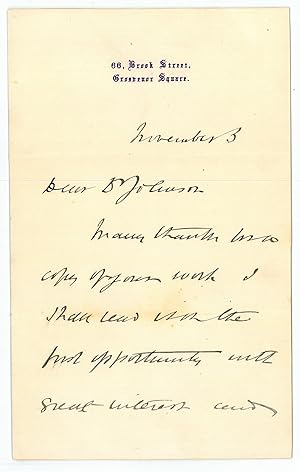 66, Brook Street,
Grosvenor Square.
November 3
Dear Dr Johnson
Many thanks for a
copy of your work I
shall read it on the
first opportunity with
great interest and